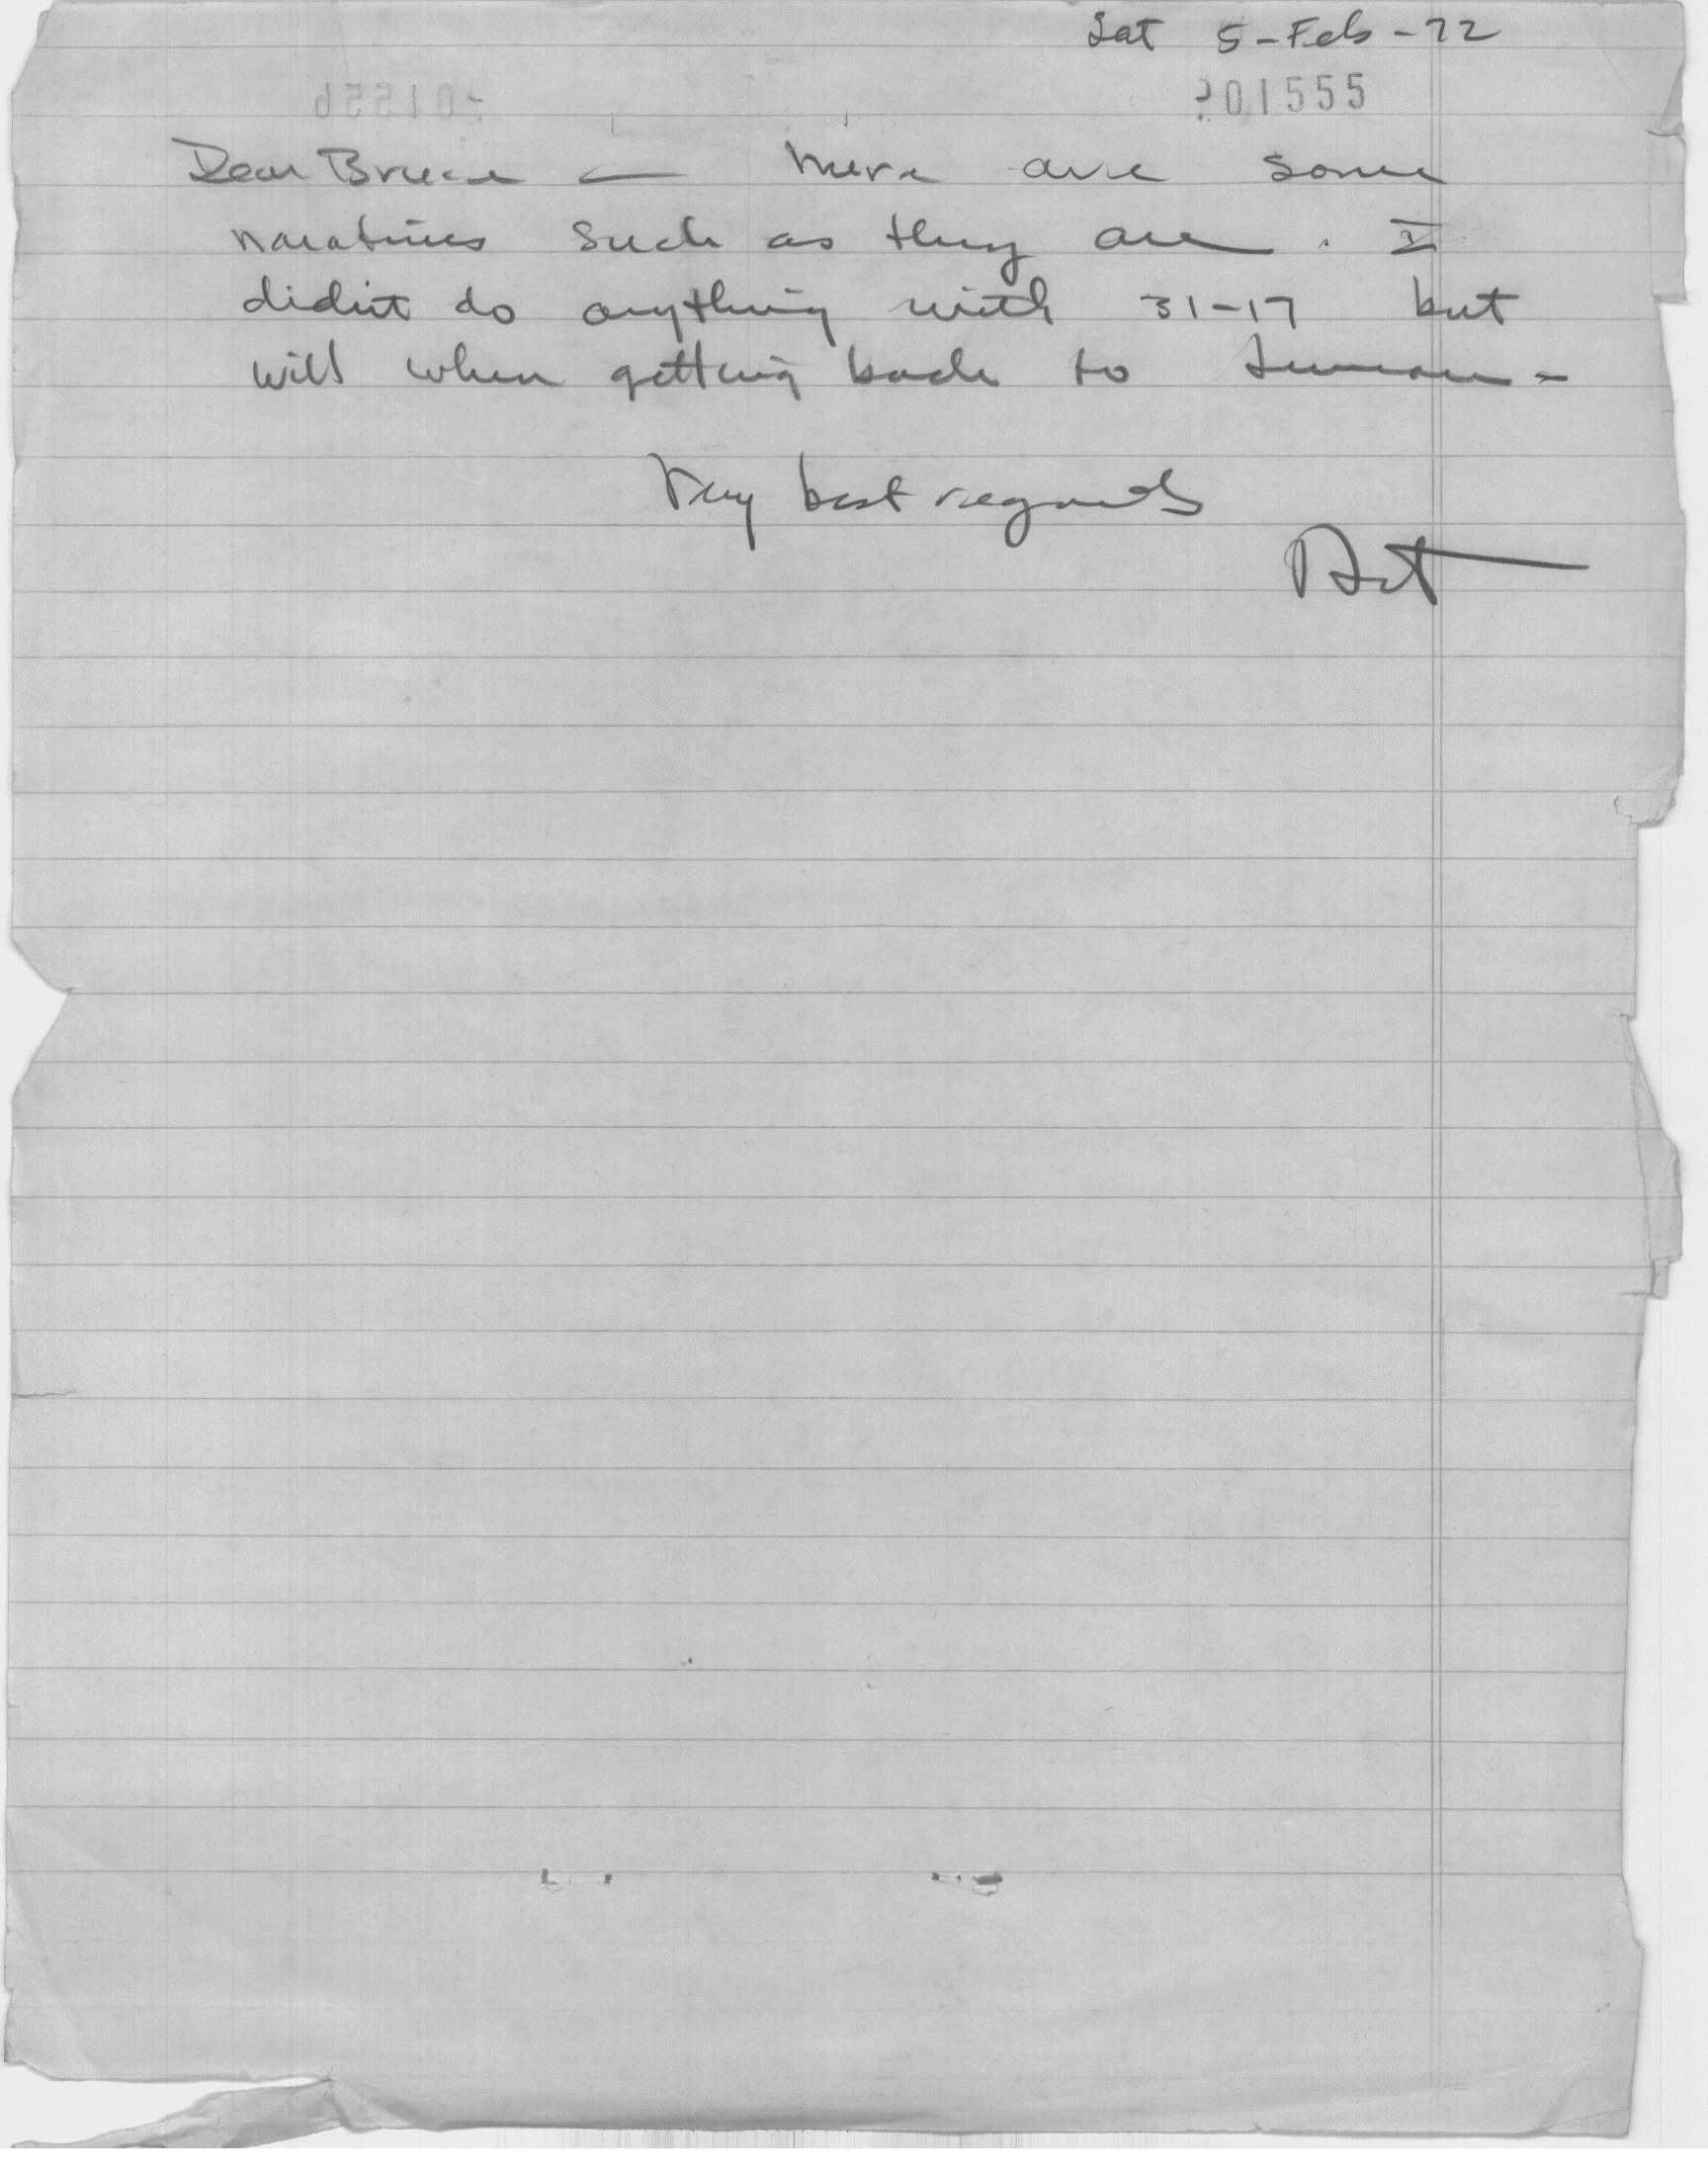 Sat 5-Feb-72
201555
Dear Bruce — Here are some
naratives such as they are. I
didn't do anything with 31-17 but
will when getting back to -
Very best regards
Art